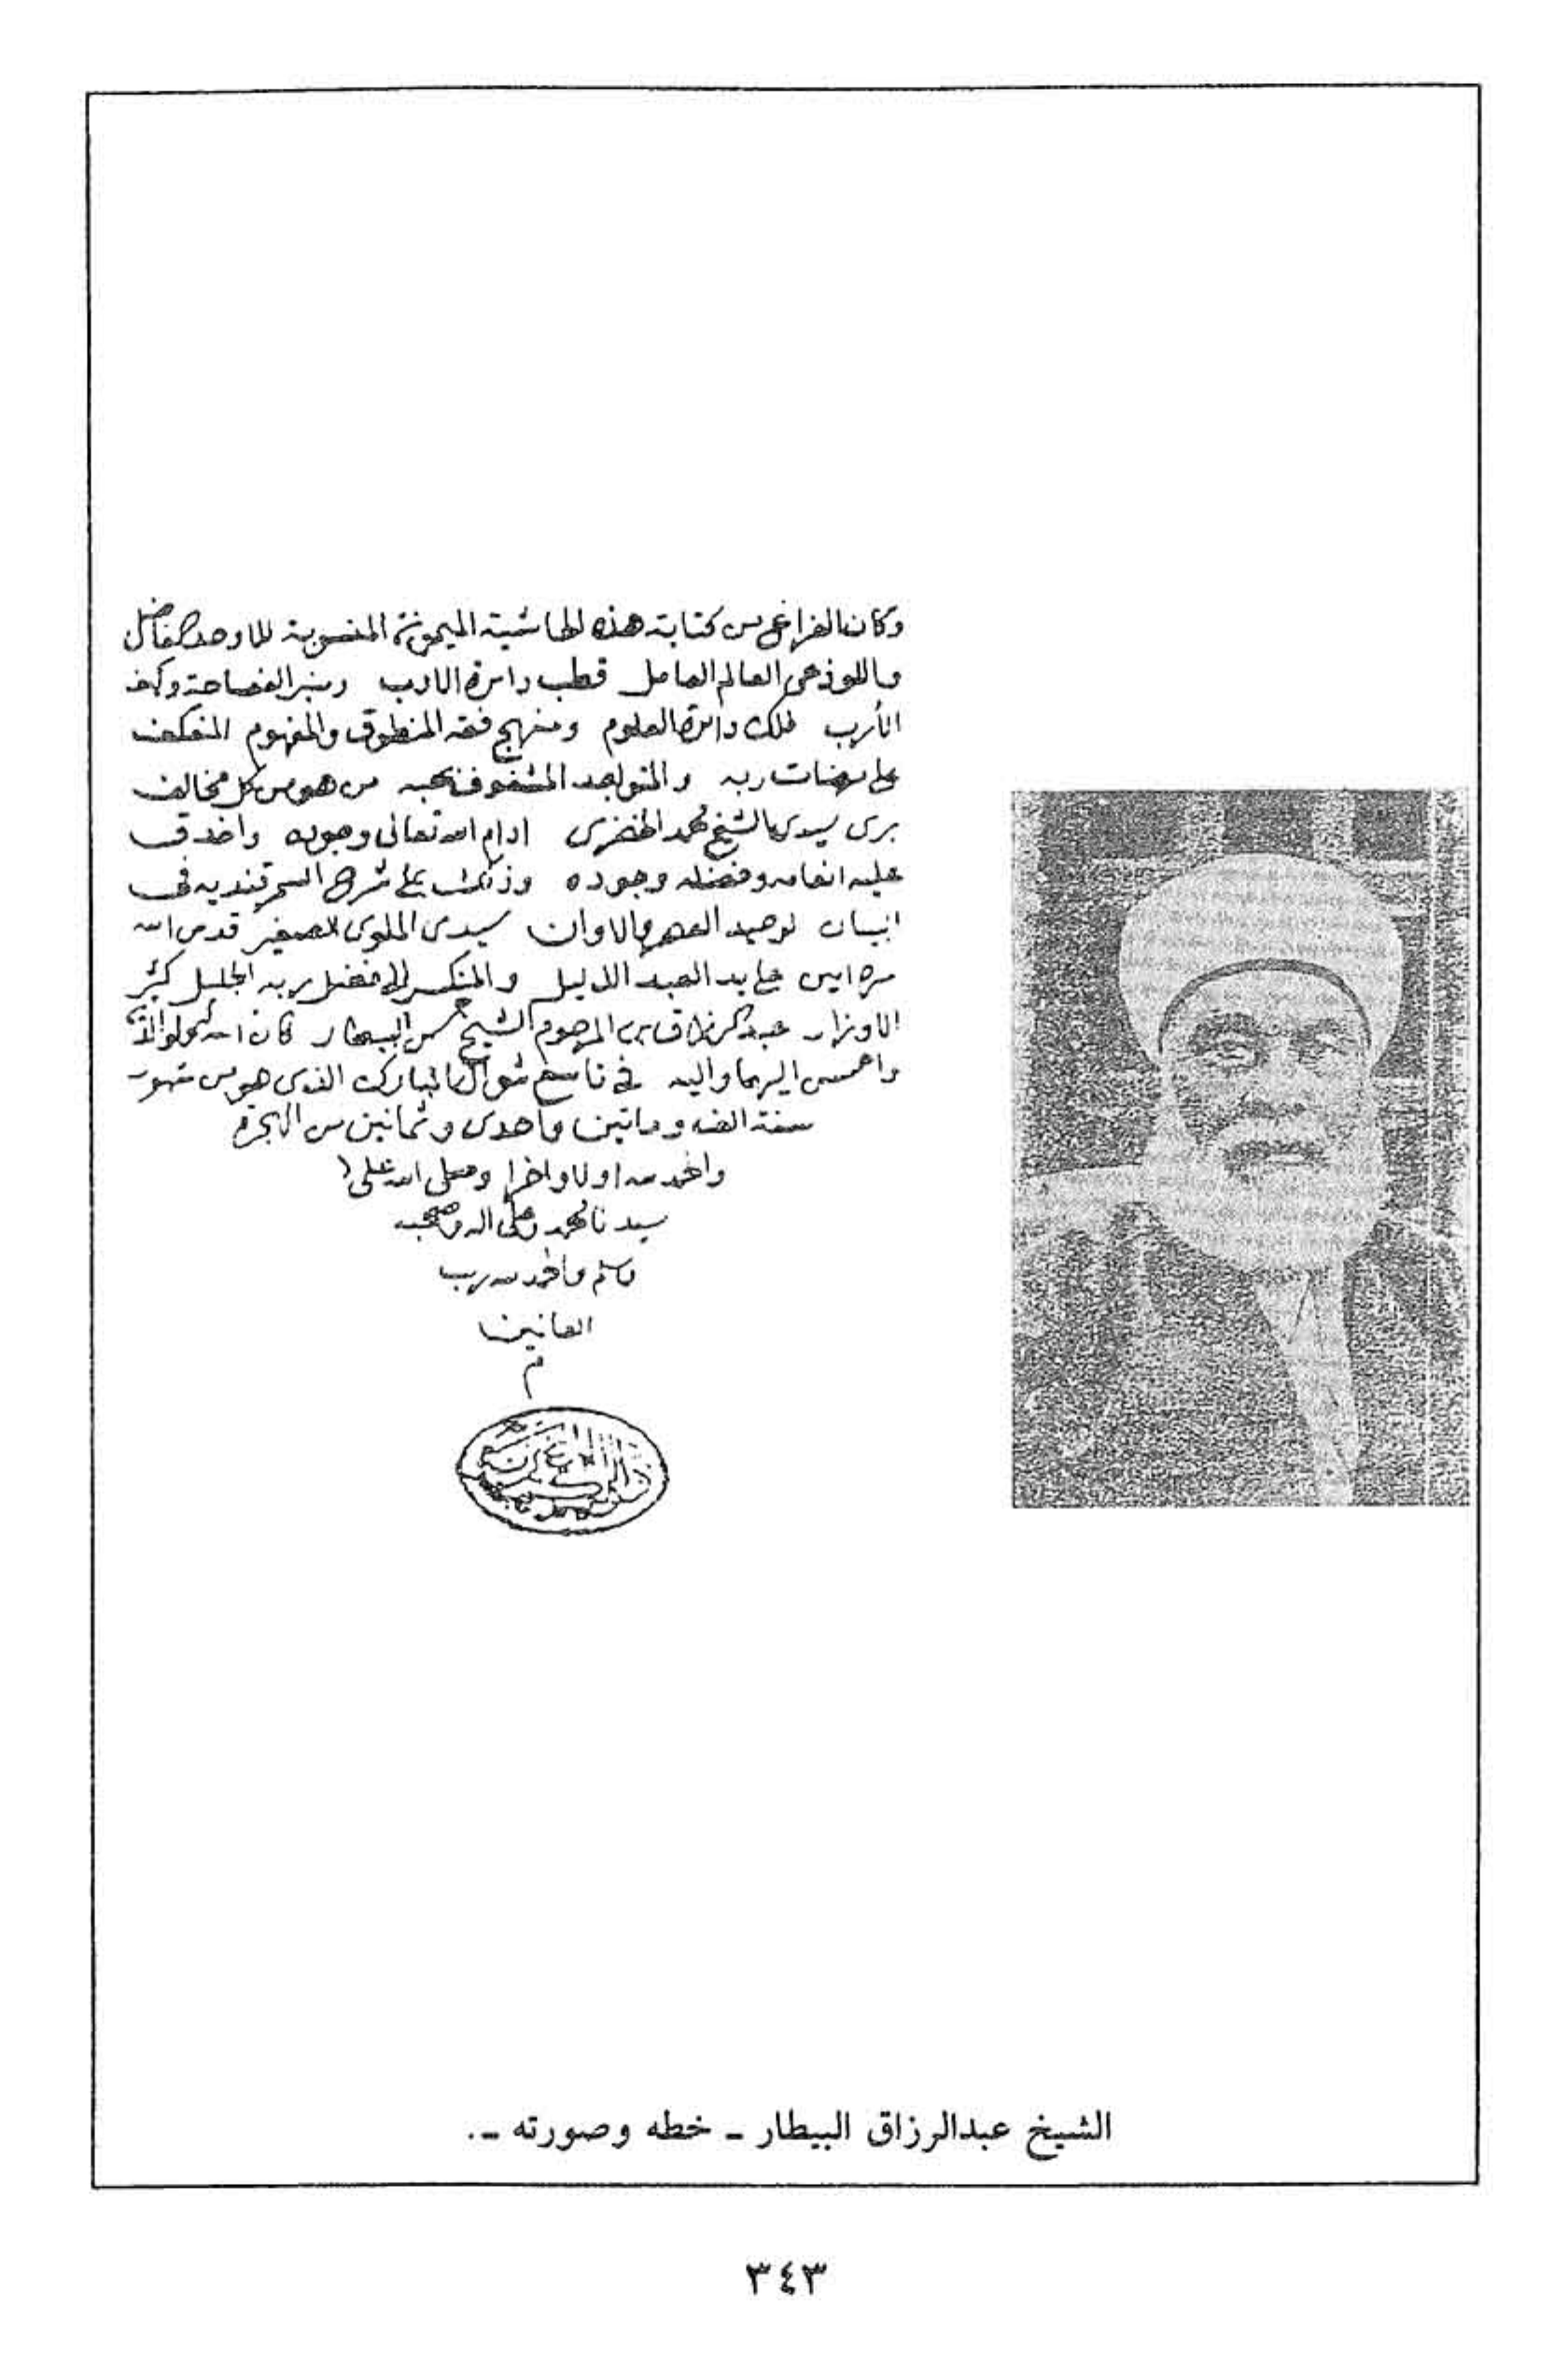 وكان الفراغ من كتابة هذه الحاشية الميمونة المنسوبة للاوحد الفاضل
واللوذعي العالم العامل قطب دائرة الادب ومنبر الفصاحة وكهف
الأرب فلك دائرة العلوم ومنهج فقه المنطوق والمفهوم المنعكف
على مرضات ربه والمتواجد المشغوف بحبه من هو من كل مخالف
بري سيدي الشيخ محمد الخضري ادام الله تعالى وجوده واغدق
عليه انعامه وفضله وجوده وذلك على شرح السمرقنديه في
البيان لوحيد العصر والاوان سيدي الملوي الصغير قدس الله
سره امين على يد العبد الذليل والمنكسر لافضل ربه الجليل كثير
الاوزار عبد الرزاق بن المرحوم الشيخ حسن البيطار كان الله له ولوالديه
واحسن اليهما واليه في تاسع شوال المبارك الذي هو من شهور
سنة الف وماتين واحدى وثمانين من الهجرة
والحمد لله اولا واخرا وصلى الله على
سيدنا محمد وعلى اله وصحبه
وسلم والحمد لله رب
العالمين
م
الشيخ عبدالرزاق البيطار ـ خطه وصورته ـ.
٣٤٣